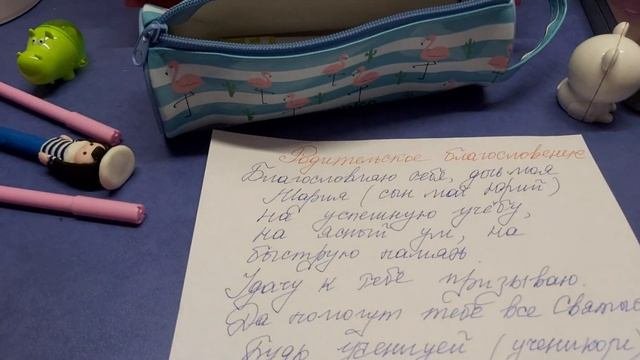 Родительское благословение
Благословляю тебя, дочь моя
Мария (сын мой Юрий)
на успешную учёбу,
на ясный ум, на
быструю память.
Удачу к тебе призываю.
Да помогут тебе все Святые
Будь ученицей (учеником